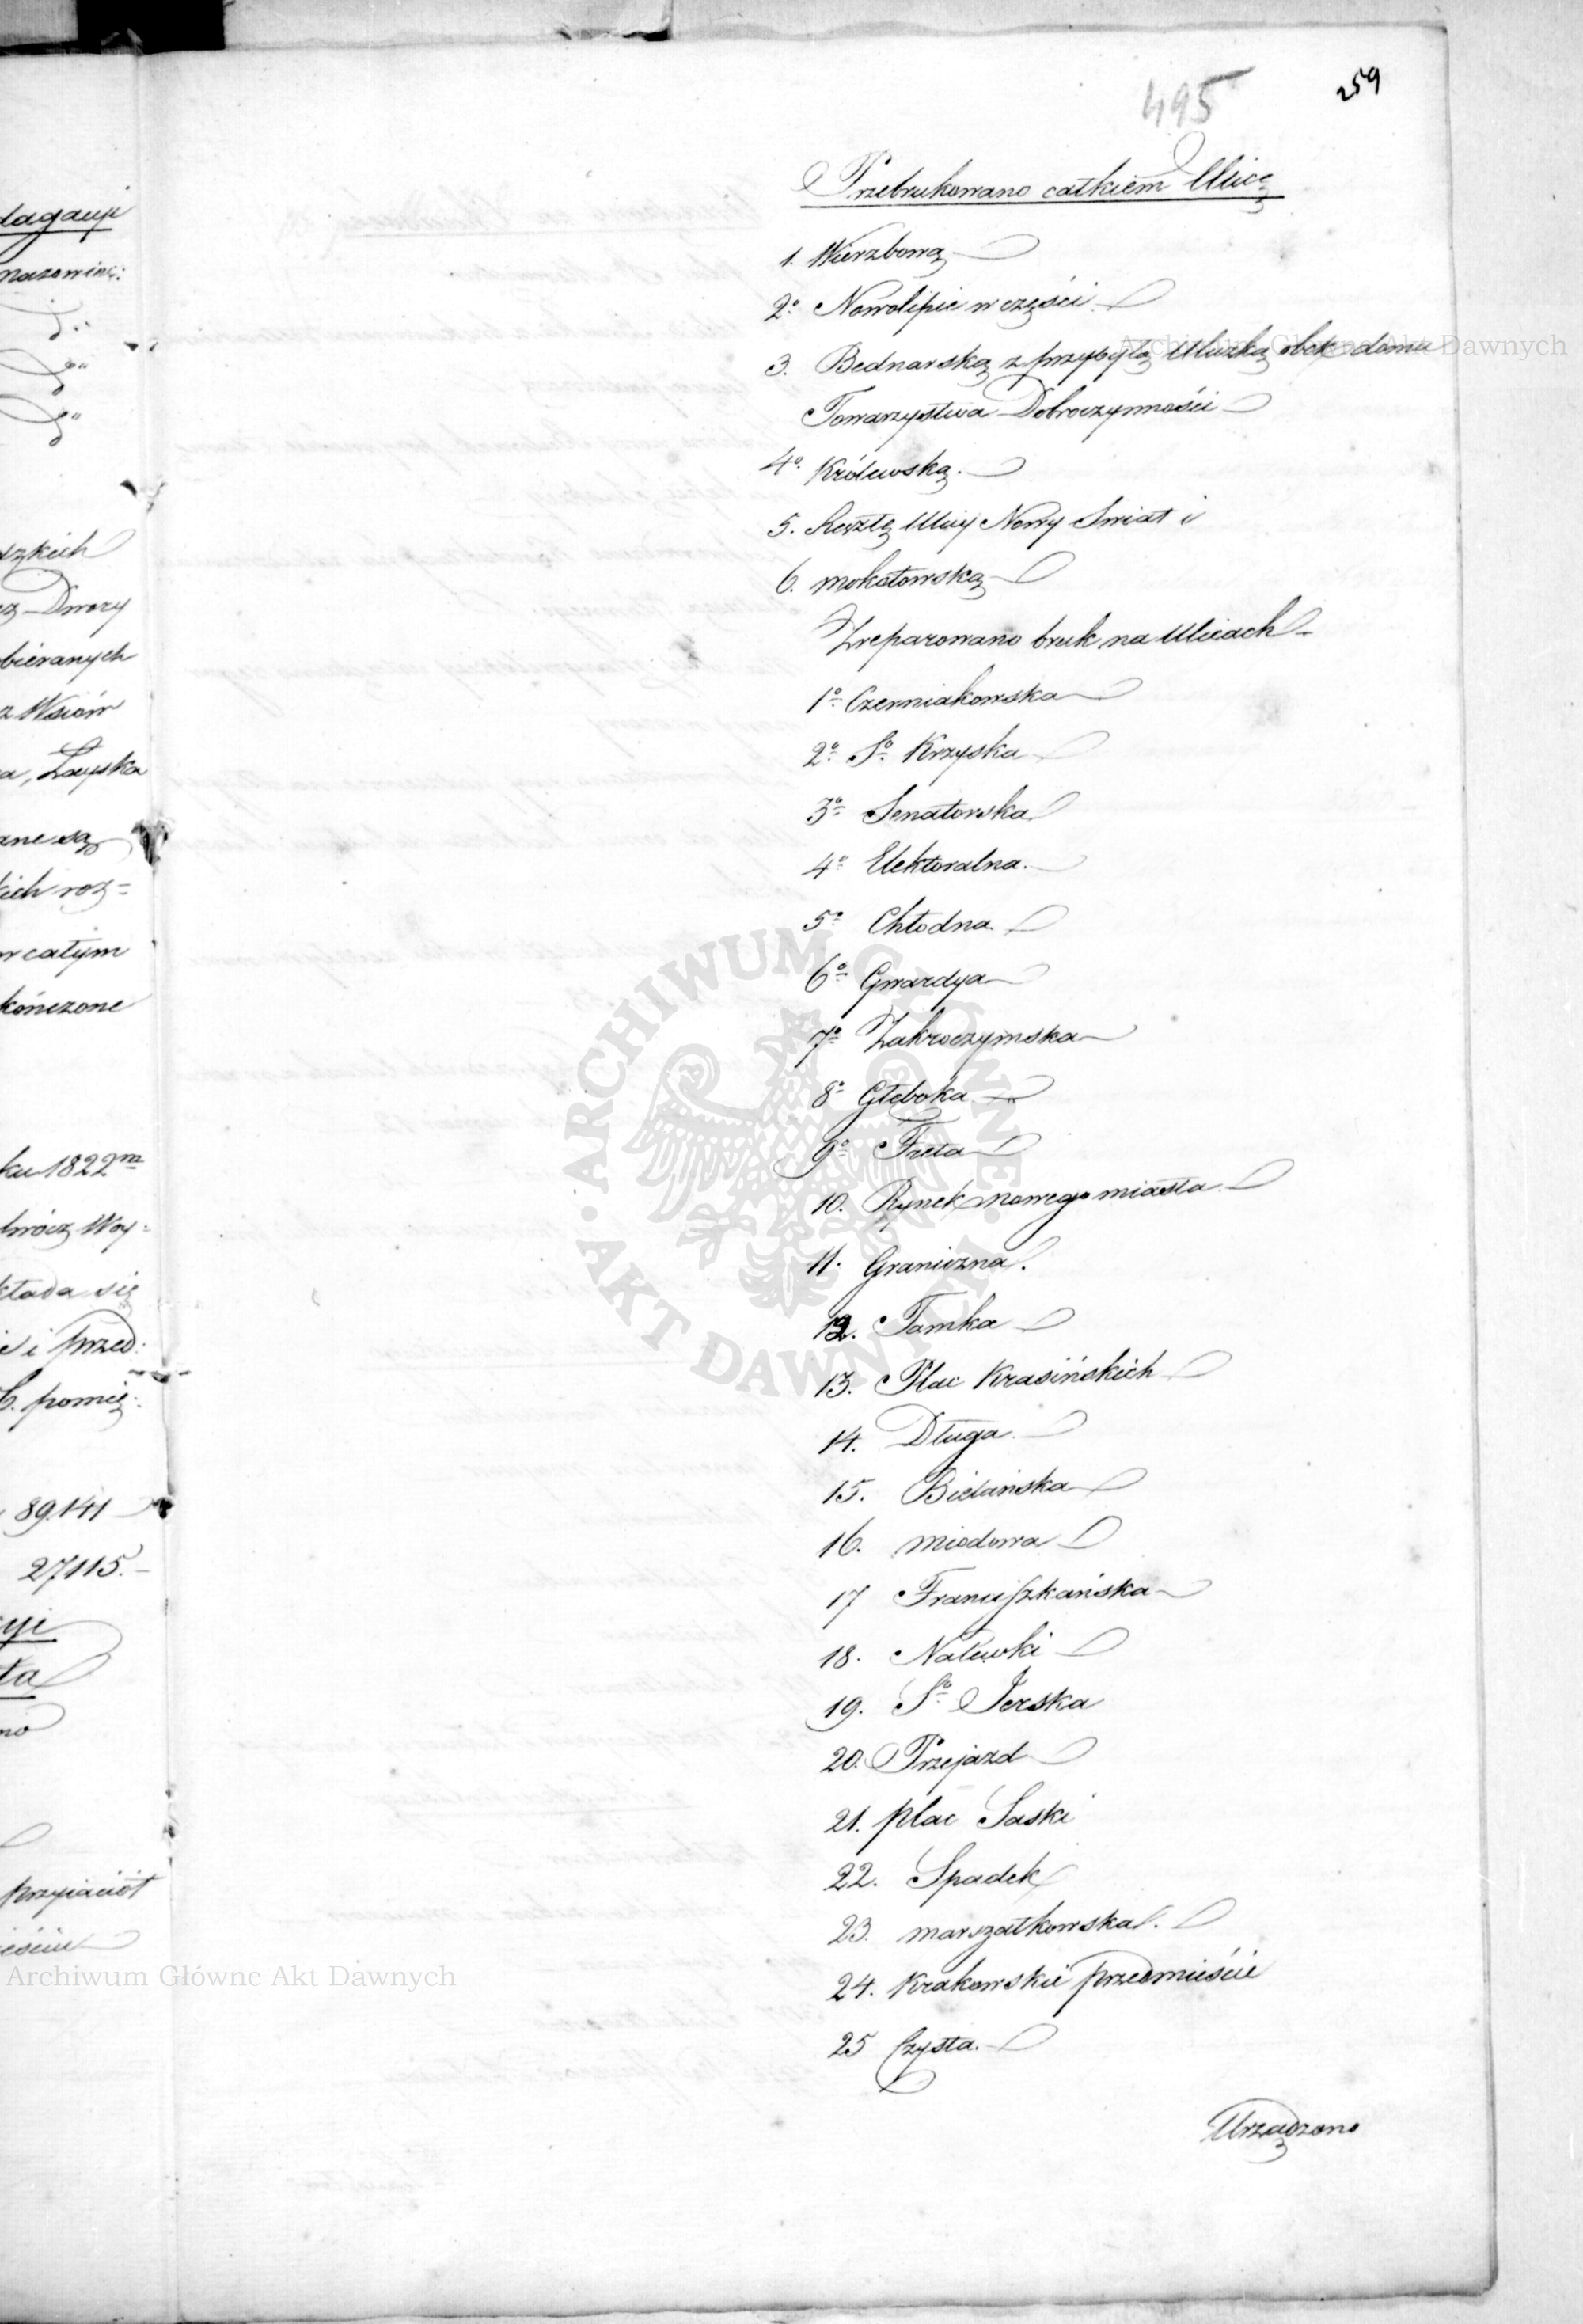 dagacyi
mazowiec:
dzkich
ez Dwory
bieranych
z Wsiów
a, Łayska
ane są
kich roz=
w całym
kończone
ku 1822
twócz Woy=
kłada się
i przed:
6. pomię:
89.141
27115.–
cyi
ta
no
przyiaciół
495
259
Przebrukowano całkiem Ulicę
1. Wierzbową
2º Nowolipie w części
3. Bednarską z przybyłą Uliczką obok domu
Towarzystwa Dobroczynności
4º. Królewską.
5. Resztę Ulicy Nowy Swiat i
6. mokotowską
Zreparowano bruk na Ulicach
1º Czerniakowska
2º Sº Krzyska
3º Senatorska
4º Elektoralna.
5º Chłodna.
6º Gwardya
7º Zakroczymska
8º Głeboka
9º Freta
10. Rynek nowego miasta
11. Graniczna.
12. Tamka
13. Plac Krasińskich
14. Długa.
15. Bielańska
16. miodowa
17 Franciszkańska
18. Nalewki
19. Sº Jerska
20. Przejazd
21. plac Saski
22. Spadek
23. marszałkowska.
24. Krakowskie przedmieście
25 Czysta.
Urządzono
Archiwum Główne Akt Dawnych
Archiwum Główne Akt Dawnych
ARCHIWUM GŁÓWNE
AKT DAWNYCH